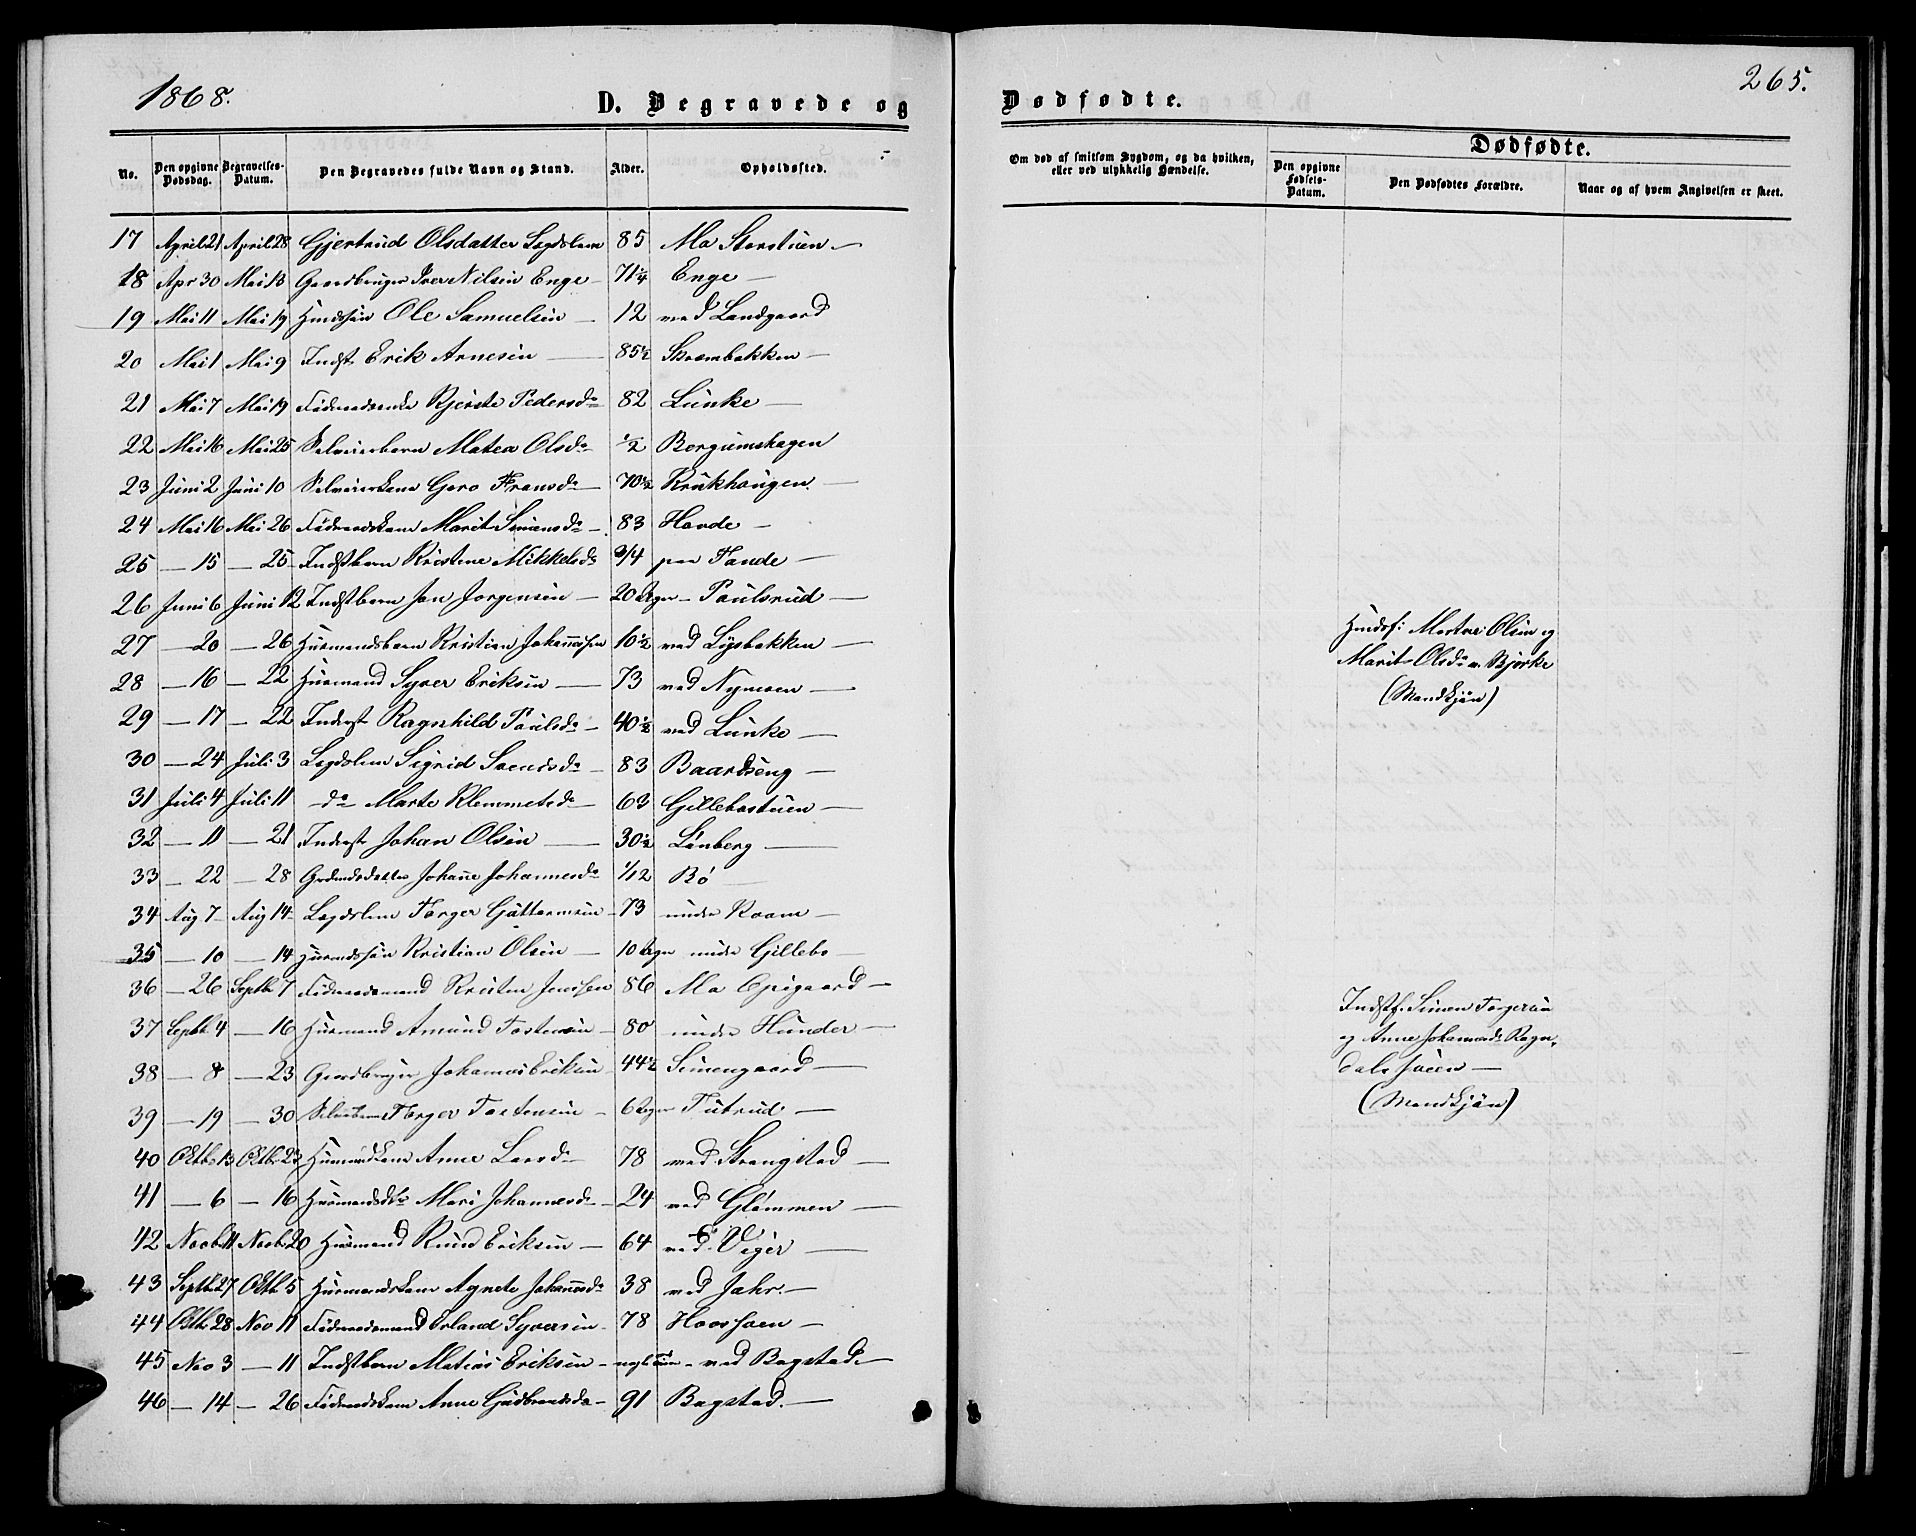 1868.
D. Begravede og
No. Den opgivne Dødsdag. Begravelses-Datum. Den Begravedes fulde Navn og Stand. Alder. Opholdssted.
17 April 21 April 28 Gjertrud Olsdatter Legdslem 85 Mo Storstuen
18 Apr 30 Mai 13 Gaardbruger Iver Nilsen Enge 71 1/4 Enge
19 Mai 11 Mai 19 Ole Samuelsen 12 ved Landgaard
20 Mai 1 Mai 9 Indst Erik Arnesen 85 1/2 Skrambakken
21 Mai 7 Mai 19 Kjersti Pedersd 82 Lunke
22 Mai 16 Mai 25 Selveierbarn Matea Olsd 1/2 Borgumshagen
23 Juni 2 Juni 10 Selveierkone Goro Fransd 70 1/2 Krukhougen
24 Mai 16 Mai 26 Føderaadskone Marit Simensd 83 Hovde
25 — 15 — 25 Indstbarn Kristine Mikkelsd 3/4 paa Fonde
26 Juni 6 Juni 12 Indstbarn Jon Jorgensen 20 Dage Paulsrud
27 — 20 — 26 Husmandsbarn Kristian Johannessen 10 1/2 ved Lysbakken
28 — 16 — 22 Husmand Syver Eriksen 73 ved Nymoen
29 — 17 — 22 Inderst Ragnhild Paulsd 40 1/2 ved Lunke
30 — 24 Juli 3 Legdslem Sigrid Svendsd 83 Baardseng
31 Juli 4 Juli 11 do Marte Klemmetsd 63 Gillebostuen
32 — 11 — 21 Inderst Johan Olsen 30 1/2 Lønberg
33 — 22 — 28 Johanne Johannesd 1/12 Bø
34 Aug 7 Aug 14 Legdslem Torger Guttormsen 73 under Roam
35 — 10 — 14 Kristian Olsen 10 Dage under Gillebo
36 — 26 Septb 7 Føderaadsmand Kristen Jenssen 86 Mo Opigaard
37 Septb 4 — 16 Husmand Amund Tostensen 80 under Hunder
38 — 8 — 23 Gaardbruger Johannes Eriksen 44 1/2 Simengaard
39 — 19 — 30 Torger Tostensen 6 Dage Tutrud
40 Octb 13 Octb 23 Husmandskone Anne Larsd 78 ved Strangstad
41 — 6 — 16 Mari Johannesd 24 ved Glømmen
42 Novb 11 Novb 20 Husmand Knud Eriksen 64 ved Veger
43 Septb 27 Octb 5 Husmandskone Agnete Johannesd 38 ved Jahr
44 Octb 28 Nov 11 Føderaadsmand Erland Syversen 78 Hovsloen
45 Nov 3 — 11 Indstbarn Matias Eriksen ved Bogstad
46 — 14 — 26 Føderaadskone Anne Gudbrandsd 91 Bogstad
265.
Dødfødte.
Om død af smitsom Sygdom, og da hvilken, eller ved ulykkelig Hændelse.
Dødfødte.
Den opgivne Fødsels-Datum. Den Dødfødtes Forældre. Naar og af hvem Angivelsen er skeet.
Husmdf: Martin Olsen og
Marit Olsd v. Bjørke
(Mandkjøn)
Indstf. Simen Torgersen
og Anne Johannesd Rogn
dals
(Mandkjøn)